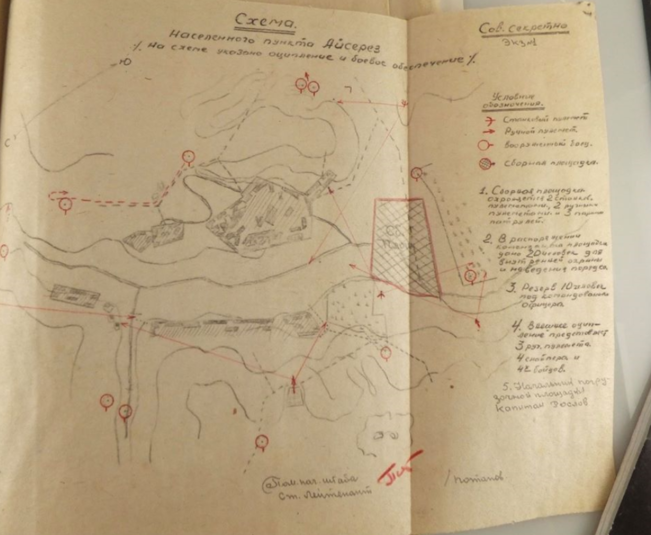 Схема.
Населенного пункта Айсерез
/. На схеме указано оцепление и боевое обеспечение /.
Сов. Секретно
Экз №1
Ю
С
Условные
обозначения.
Станковый пулемет
Ручной пулемет
Вооруженный
Сборная площадка.
1. Сборная площадка
охр 2 станков.
пулеметами, 2 ручн.
пулеметами и 3 парни
патрулей.
2. В распоряжении
коменданта
20 человек для
внутренней охраны
и наведение порядка
3. Резерв 10 человек
под командованием
Офицера
4. Внешнее оцеп-
ление представляет
3 руч. пулемета
4 снайпера и
42 бойцов.
5. Начальник погру-
зочной площадки
Капитан
Сб.
Пом. нач. штаба
Ст. Лейтенант
/Потапов